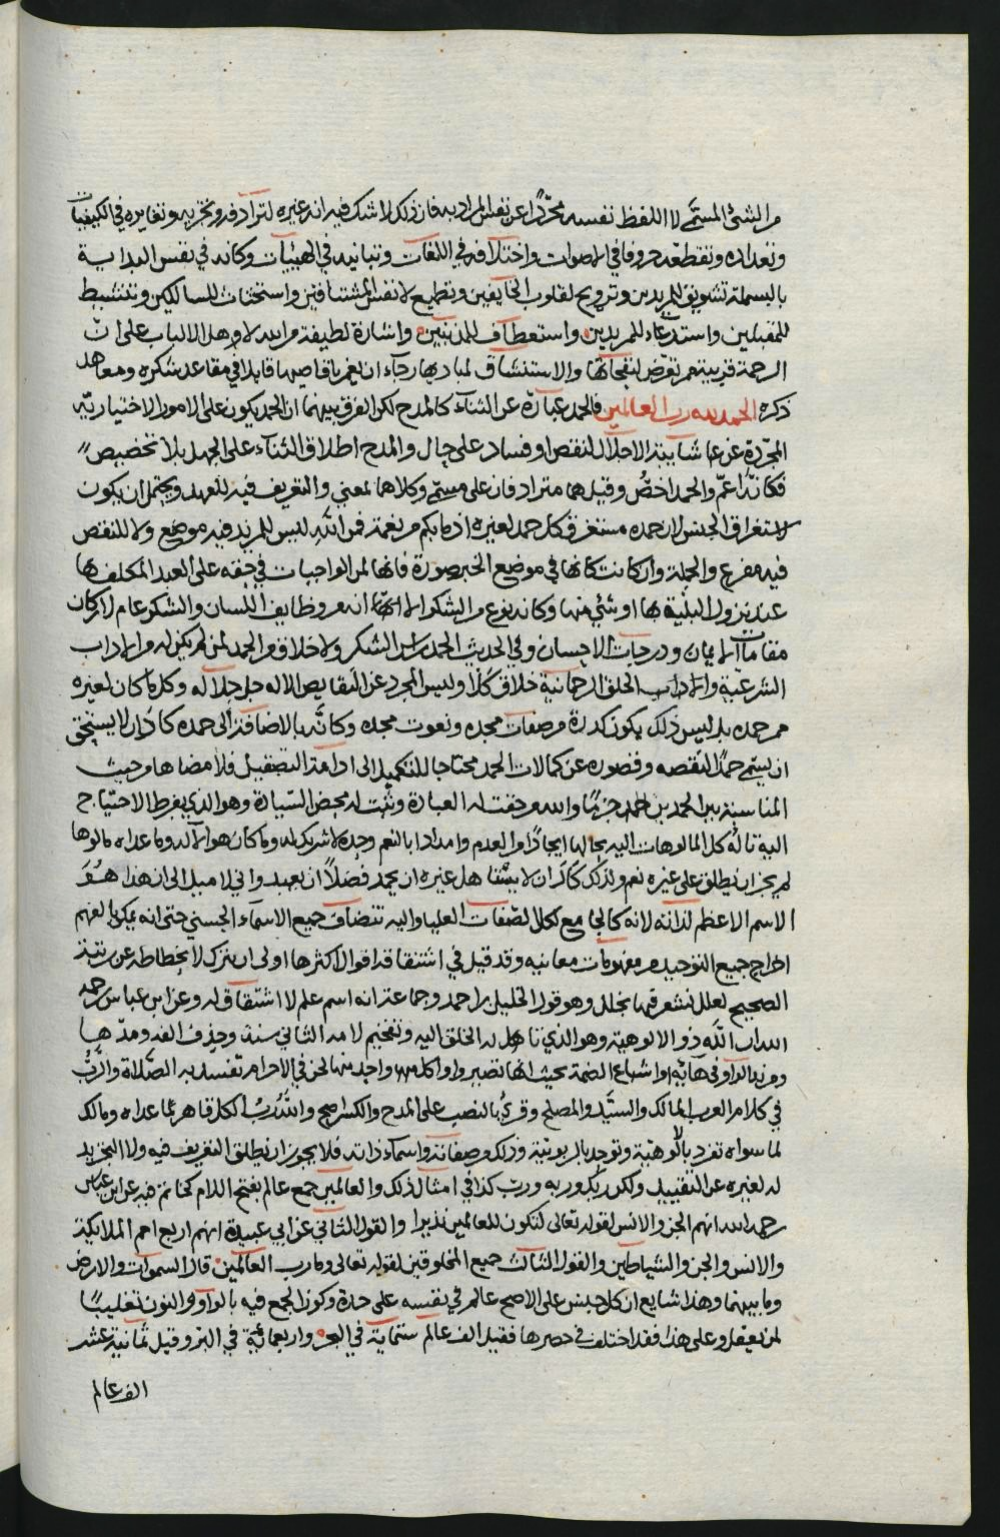 من الشئ المسمى لا اللفظ نفسه مجردًا عن نفس المراد به فان ذلك لا شك فيه انه غيره لترادفه وتجزيه وتغايره في الكيفيات
وتعداده وتقطعه حروفا في الاصوات واختلافه في اللغات وتباينه في الهيئات وكانه في نفس البداية
بالبسملة تشويق للمريدين وترويح لقلوب الخايفين وتطميع لانفس المشتاقين واستحثاث للسالكين وتنشيط
للمقبلين واستدعاء للمريدين واستعطاف للمذنبين واشارة لطيفة من الله لاوهل الالباب على ان
الرحمة قريبة ممن تعرض لنفحاتها والاستنشاق لمباديها رجآء ان يغمر باقاصيها قايلا في مقاعد شكره ومعاهد
ذكره الحمد لله رب العالمين فالحمد عبارة عن الثنآء كالمدح لكن الفرق بينهما ان الحمد يكون على الامور الاختيارية
المجردة عن شايبة الاحلال لنقص او فساد على حال والمدح اطلاق الثنآء على الجميل بلا تخصيص
فكانه اعم والحمد اخص وقيل هما مترادفان على مسمى وكلاهما لمعنى والتعريف فيه للعهد ويحتمل ان يكون
لاستغراق الجنس لان حمده مستغرق كل حمد لغيره اذ ما بكم من نعمة فمن الله ليس للمزيد فيه موضع ولا للنقص
فيه مفرع والجملة وان كانت كانها في موضع الخبر صورة فانها لمن الواجبات في حقه على العبد المكلف بها
عند نزول البلية بها او شئ منها وكانه نوع من الشكر الا انه من وظايف اللسان والشكر عام لاركان
مقامات الايمان ودرجات الاحسان وفي الحديث الحمد راس الشكر ولا خلاف من الحمد لمن لم يكن له من الاداب
الشرعية والاداب الخلق الرحمانية خلاق كلا وليس المجرد عن النقايص الا له جل جلاله وكل ما كان لغيره
من حمده بل ليس ذلك يكون كدرة من صفات مجده ونعوت مجده وكانه بالاضافة الى حمده كاد ان لا يستحق
ان يسمى حمدًا لنقصه وقصوره عن كمالات الحمد محتاجا للتكميل الى ادامة التفضيل فلا مضاها من حيث
المناسبة بين الحمدين والله من حقت له العبادة وثبت له محض السيادة وهو الذي بفرط الاحتياج
اليه تاله كل المالوهات اليه بحالها ايجادًا من العدم وامدادا بالنعم وحده لا شريك له وما كان هو الاله وما عداه مالوها
لم يجز ان يطلق على غيره نعم ولذلك كاد ان لا يستاهل غيره ان يحمد فضلا ان يعبد واني لا ميل الى ان هذا هو
الاسم الاعظم لذاته لانه كالجامع لكل الصفات العليا واليه تنضاف جميع الاسمآء الحسنى حتى انه يمكن العهم
اخراج جميع التوحيد من مفهومات معانيه وقد قيل في اشتقاقه اقوال اكثرها اولى ان يترك لانحطاطه عن رتبة
الصحيح لعلل نشعر فيها بخلل وهو قول الخليل بن احمد وجماعة انه اسم علم لا اشتقاق له وعن ابن عباس رحمه
الله ان الله ذو الالوهية وهو الذي تاهل له الخلق اليه وتفخيم لامه الثاني سنة وحذف الفه ومدها
ومزيد الواو في هآئه او اشباع الضمة بحيث انها تصير واوا كل منها واحد منها لحن في الاحرام تفسد به الصلاة والرب
في كلام العرب المالك والسيد والمصلح وقرئ بالنصب على المدح والكسر اصح والله رب الكل قاهر لما عداه ومالك
لما سواه تفرد بالالوهية وتوحد بالربوبية وذلك من صفاته واسمآء ذاته فلا يجوز ان يطلق التعريف فيه ولا التجريد
له لغيره عن التقييد ولكن ربك وربه ورب كذا في امثال ذلك والعالمين جمع عالم بفتح اللام كخاتم فيه عن ابن عباس
رحمه الله انهم الجن والانس لقوله تعالى لتكون للعالمين نذيرا والقول الثاني عن ابي عبيدة انهم اربع امم الملائكة
والانس والجن والشياطين والقول الثالث جميع المخلوقين لقوله تعالى وما رب العالمين قال السموات والارض
وما بينهما وهذا شايع ان كل جنس على الاصح عالم في نفسه على حدة وكون الجمع فيه بالواو والنون تغليبًا
لمن يعقل وعلى هذا فقد اختلف في حصرها فقيل الف عالم ستماية في البحر واربعمائة في البر وقيل ثمانية عشر
الف عالم